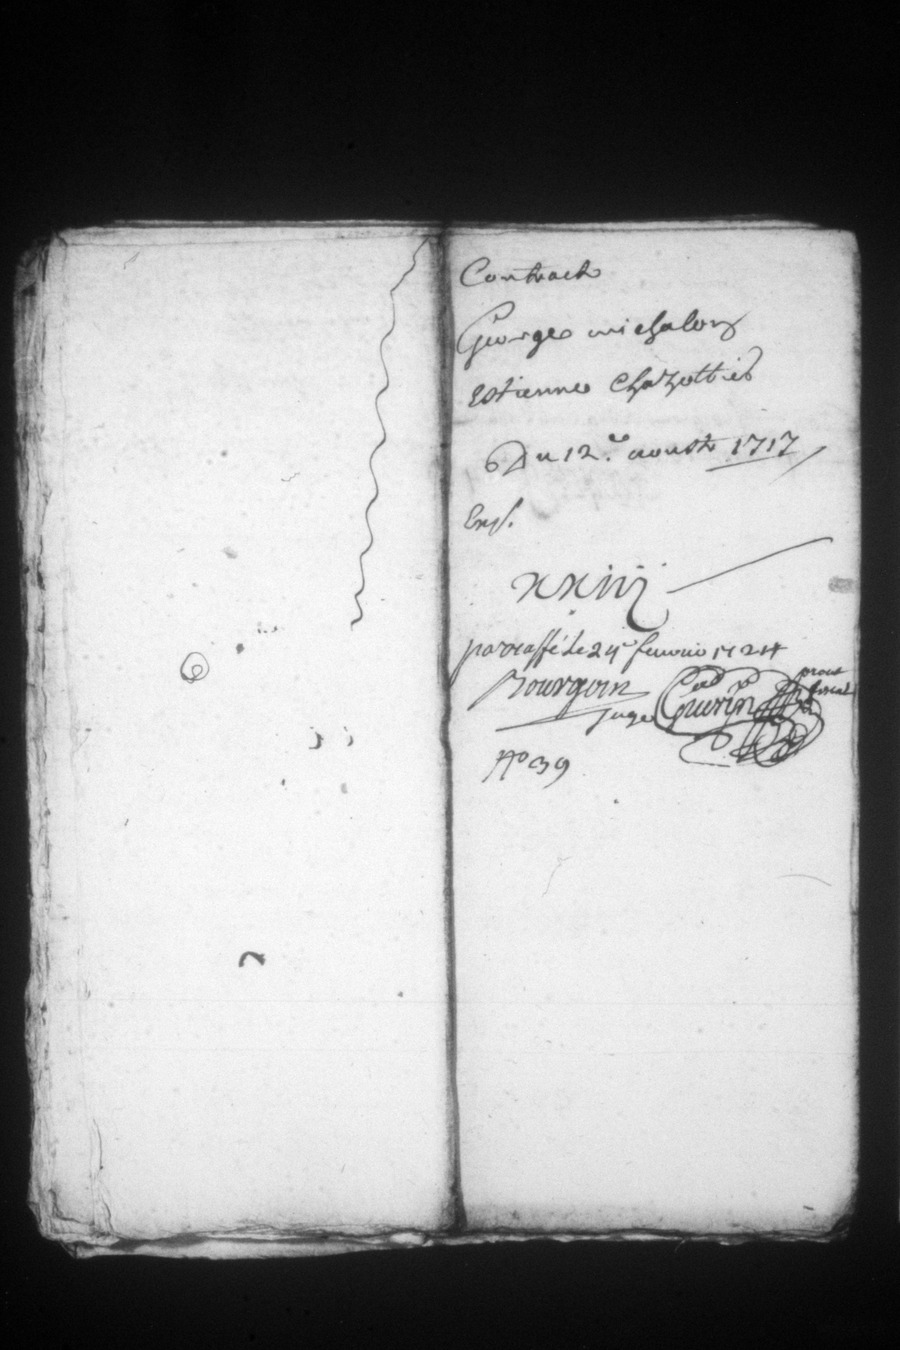 Contrach
George michalon
Estienne Chazottier
Du 12.e aoust 1717
Enj.
xxiiij
parraffé le 24e feuvrier 1724
Bourgoin juge Guerin procur fiscal
No 39